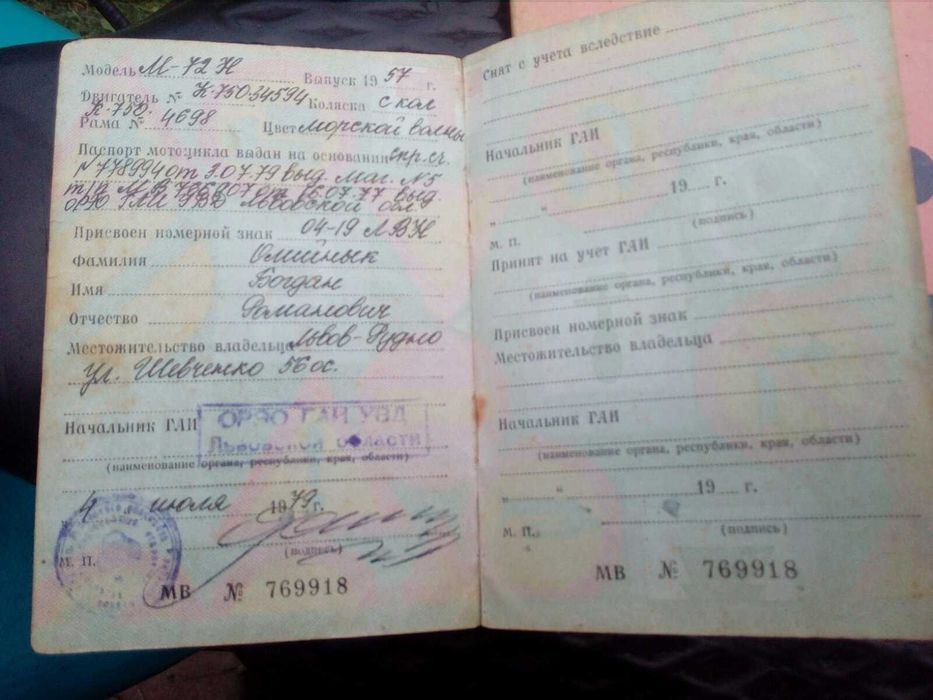 Модель М-72Н Выпуск 1957 г.
Двигатель № К-75034594 Коляска с кол
К-750.
Рама № 4698 Цвет морской волны
Паспорт мотоцикла выдан на основании спр. сч.
№778994 от 3.07.79 выд. Маг. №5
т/п МВ от 16.07.77 выд.
ОРЭО ГАИ УВД Львовской обл
Присвоен номерной знак 04-19 ЛВН
Фамилия Олийнык
Имя Богдан
Отчество Романович
Местожительство владельца Львов-Рудно
ул. Шевченко 56 ос.
ОРЭО ГАИ УВД
Начальник ГАИ
Львовской области
(наименование органа, республики, края, области)
4 июля 1979 г.
(подпись)
М. П.
МВ № 769918
Снят с учета вследствие
Начальник ГАИ
(наименование органа, республики, края, области)
„ “ 19 г.
М. П. (подпись)
Принят на учет ГАИ
(наименование органа, республики, края, области)
Присвоен номерной знак
Местожительство владельца
Начальник ГАИ
(наименование органа, республики, края, области)
„ “ 19 г.
М. П. (подпись)
МВ № 769918